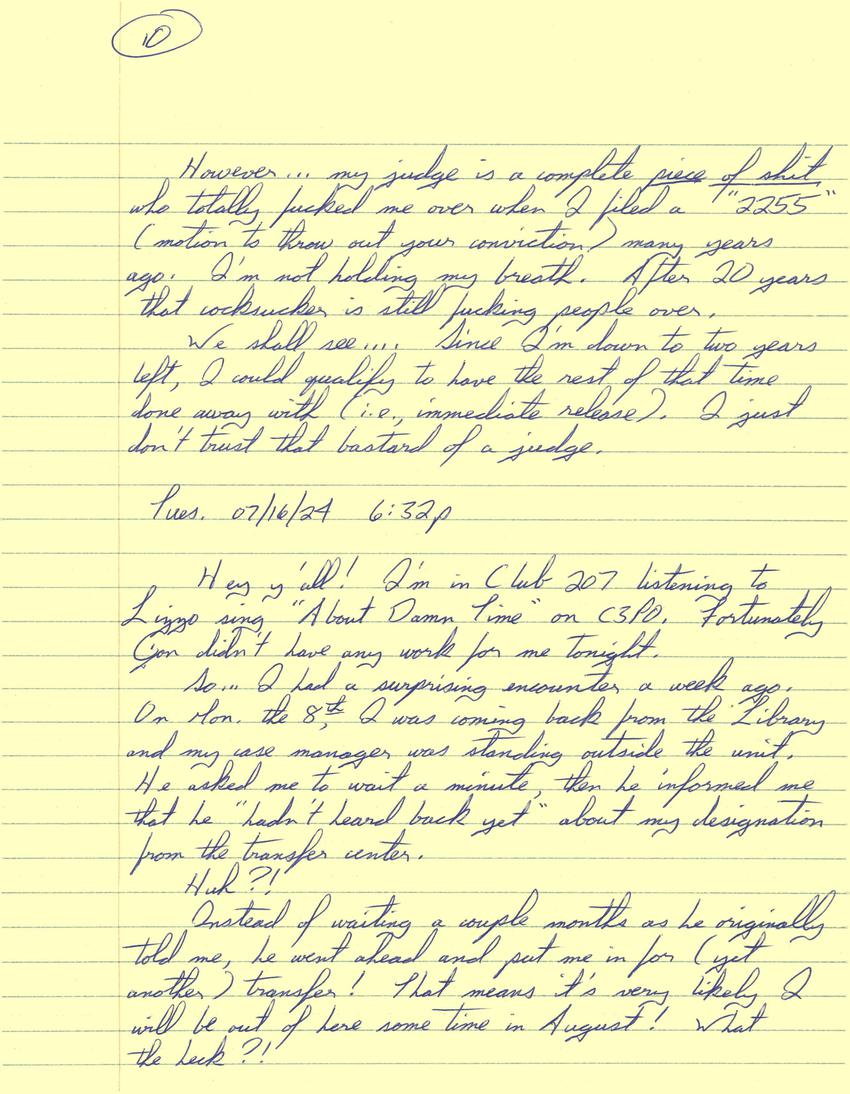 10
However... my judge is a complete piece of shit
who totally fucked me over when I filed a "2255"
(motion to throw out your conviction) many years
ago. I'm not holding my breath. After 20 years
that cocksucker is still fucking people over.
We shall see.... Since I'm down to two years
left, I could qualify to have the rest of that time
done away with (i.e., immediate release). I just
don't trust that bastard of a judge.
Tues. 07/16/24 6:32p
Hey y'all! I'm in Club 207 listening to
Lizzo sing "About Damn Time" on C3PO. Fortunately
Gon didn't have any work for me tonight.
So... I had a surprising encounter a week ago.
On Mon. the 8th, I was coming back from the Library
and my case manager was standing outside the unit.
He asked me to wait a minute, then he informed me
that he "hadn't heard back yet" about my designation
from the transfer center.
Huh?!
Instead of waiting a couple months as he originally
told me, he went ahead and put me in for (yet
another) transfer! That means it's very likely I
will be out of here some time in August! What
the heck?!